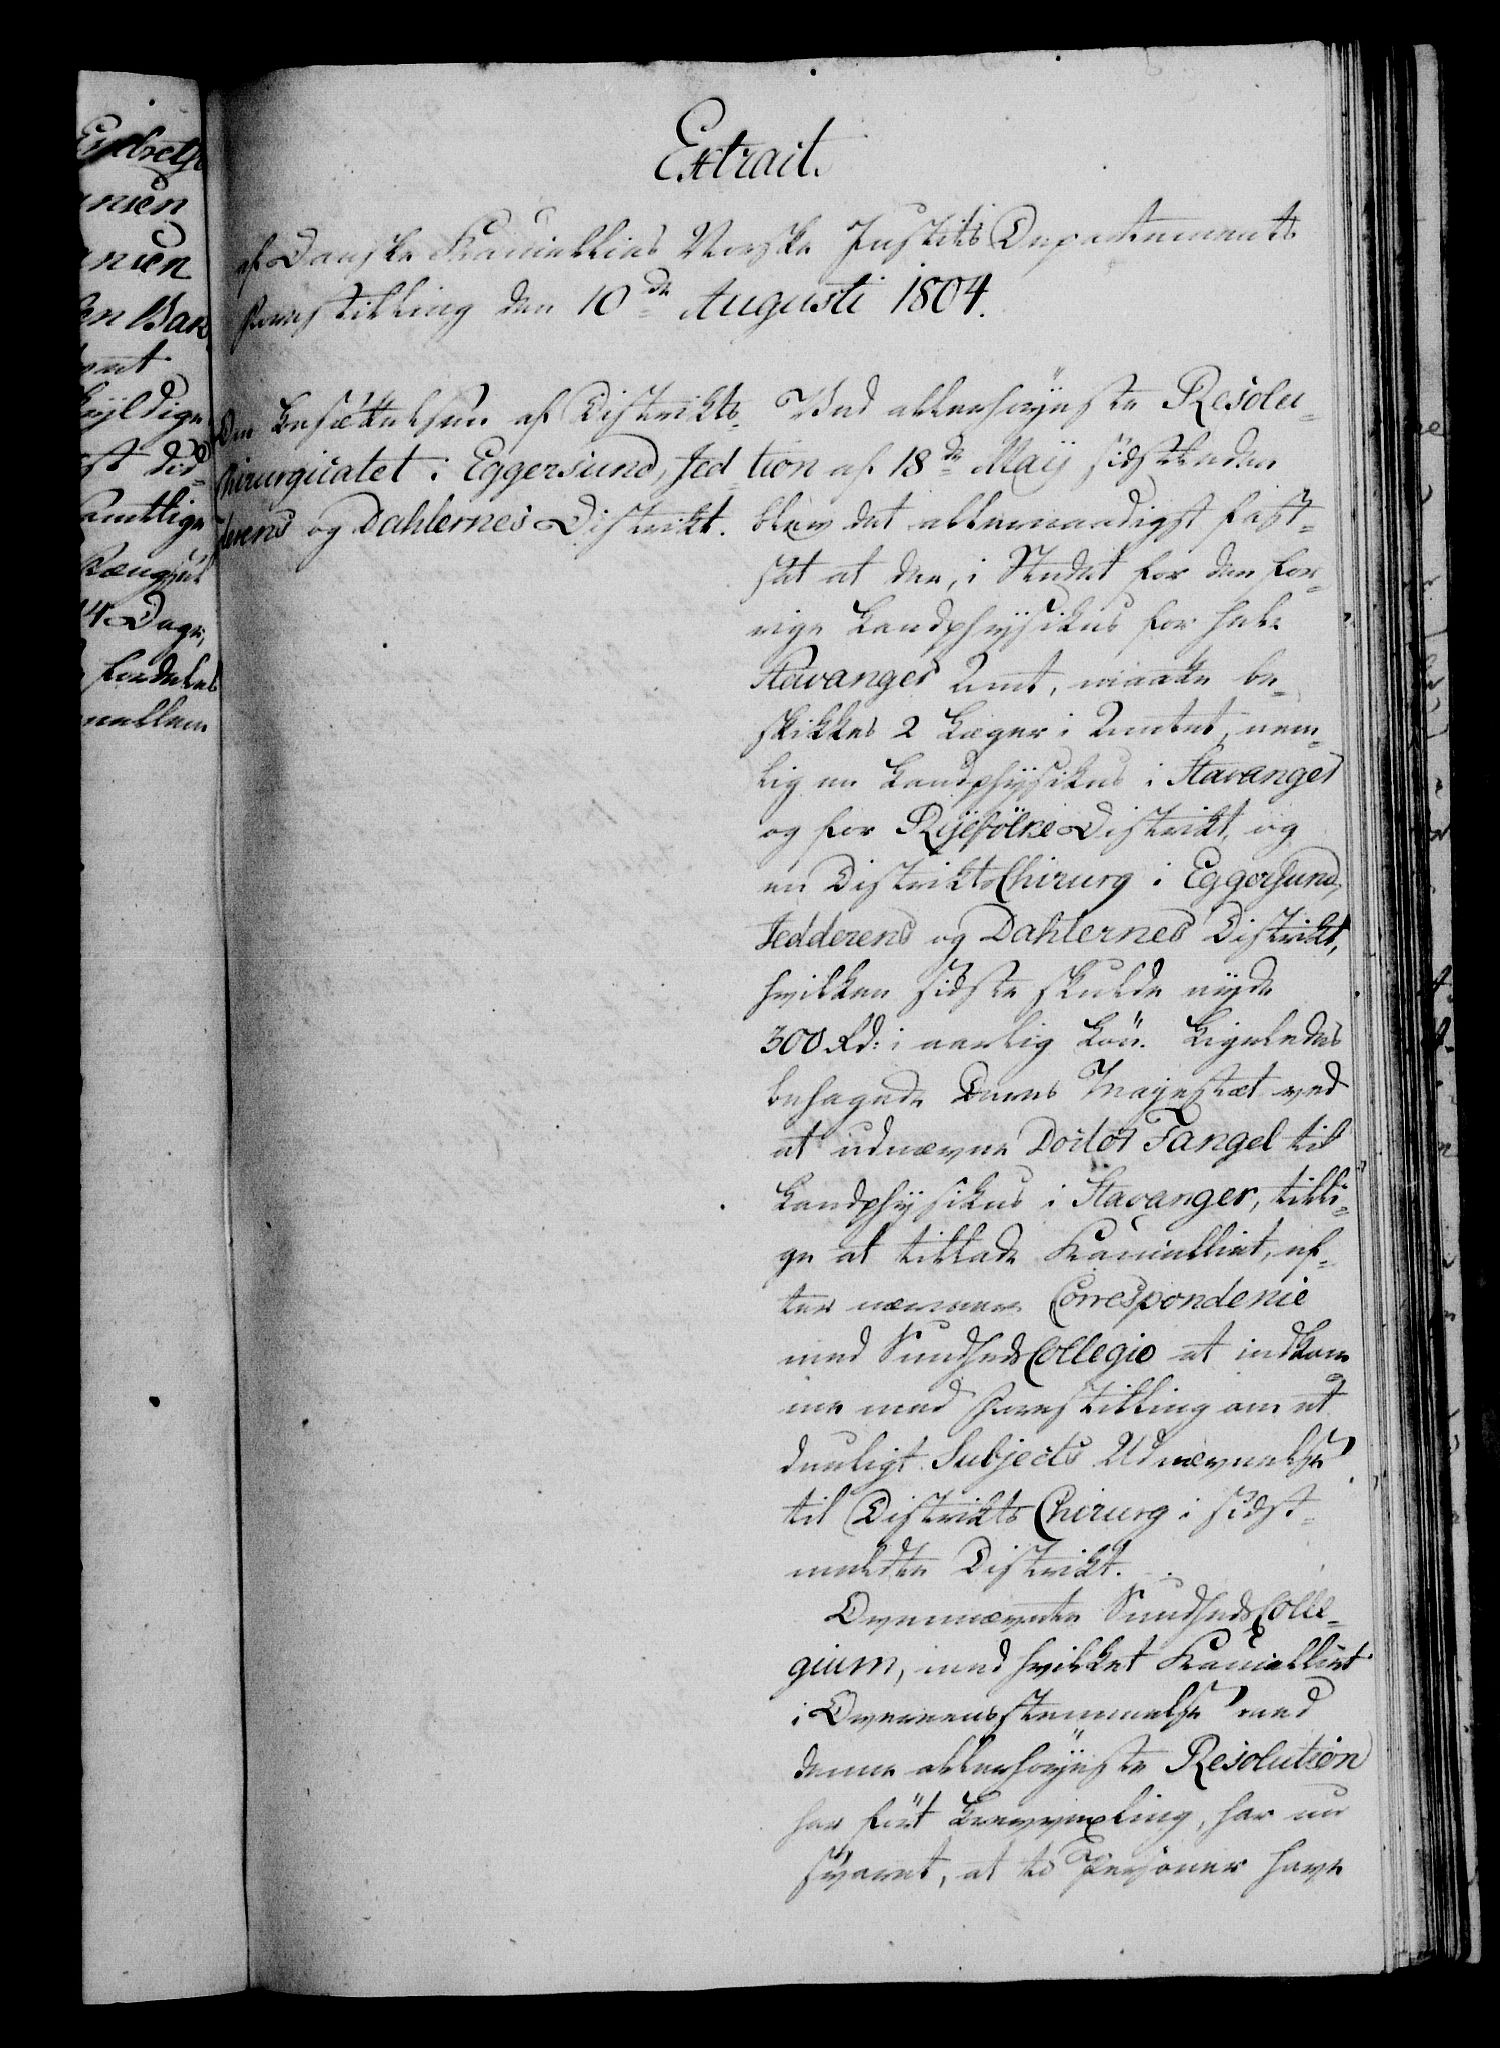 Extrait.
af Danske Kancellies Norske Justits Departements
Forestilling den 10de Augusti 1804.
Om Besættelsen af Distrikts
Chirurgicatet i Eggersund, Jed
derens og Dahlernes Distrikt.
Ved allerhøyeste Resolu-
tion af 18de Maij sidstleden
blev det allernaadigst fast-
sat at der, i Stedet for den for-
rige Landphysikus for hele
Stavanger Amt, maatte be-
skikkes 2 Læger i Amtet, nem-
lig en Landphysikus i Stavanger
og for Ryefölke Distrikt, og
en Distrikts Chirurg i Eggersund,
Jedderens og Dahlernes Distrikt,
hvilken sidste skulde nyde
300 Rd: i aarlig Lön. Ligeledes
behagede Deres Majestæt ved
at udnævne Doctor Fangel til
Landphysikus i Stavanger, tilli-
ge at tillade Kancelliet, ef-
ter nærmere Correspondence
med Sundheds Collegio at indkom
me med Forestilling om et
dueligt Subjects Udnævnelse
til Distrikts Chirurg i sidst-
meldte Distrikt.
Ovennævnte Sundheds Colle-
gium, med hvilket Kancelliet
i Overeensstemmelse med
denne allerhøyeste Resolution
har fört Brevvexling, har nu
svaret, at to Personer have